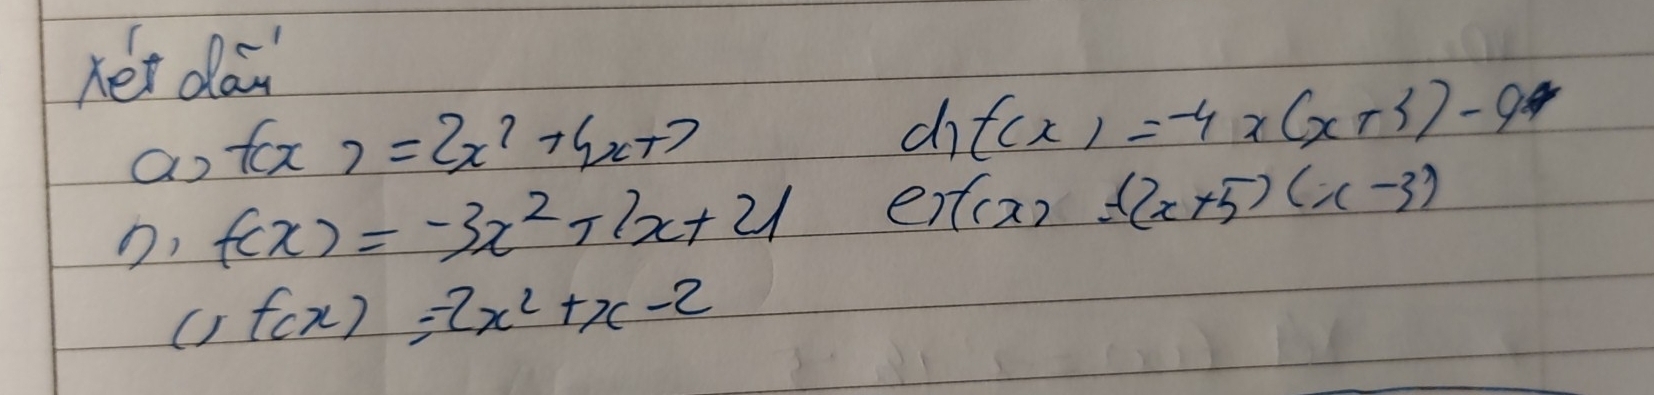 Xét dấu
a) f(x) = 2x² + 4x + 2
b) f(x) = -3x² + 2x + 21
c) f(x) = -2x² + x - 2
d) f(x) = -4x(x+3) - 9
e) f(x) = (2x+5)(x-3)